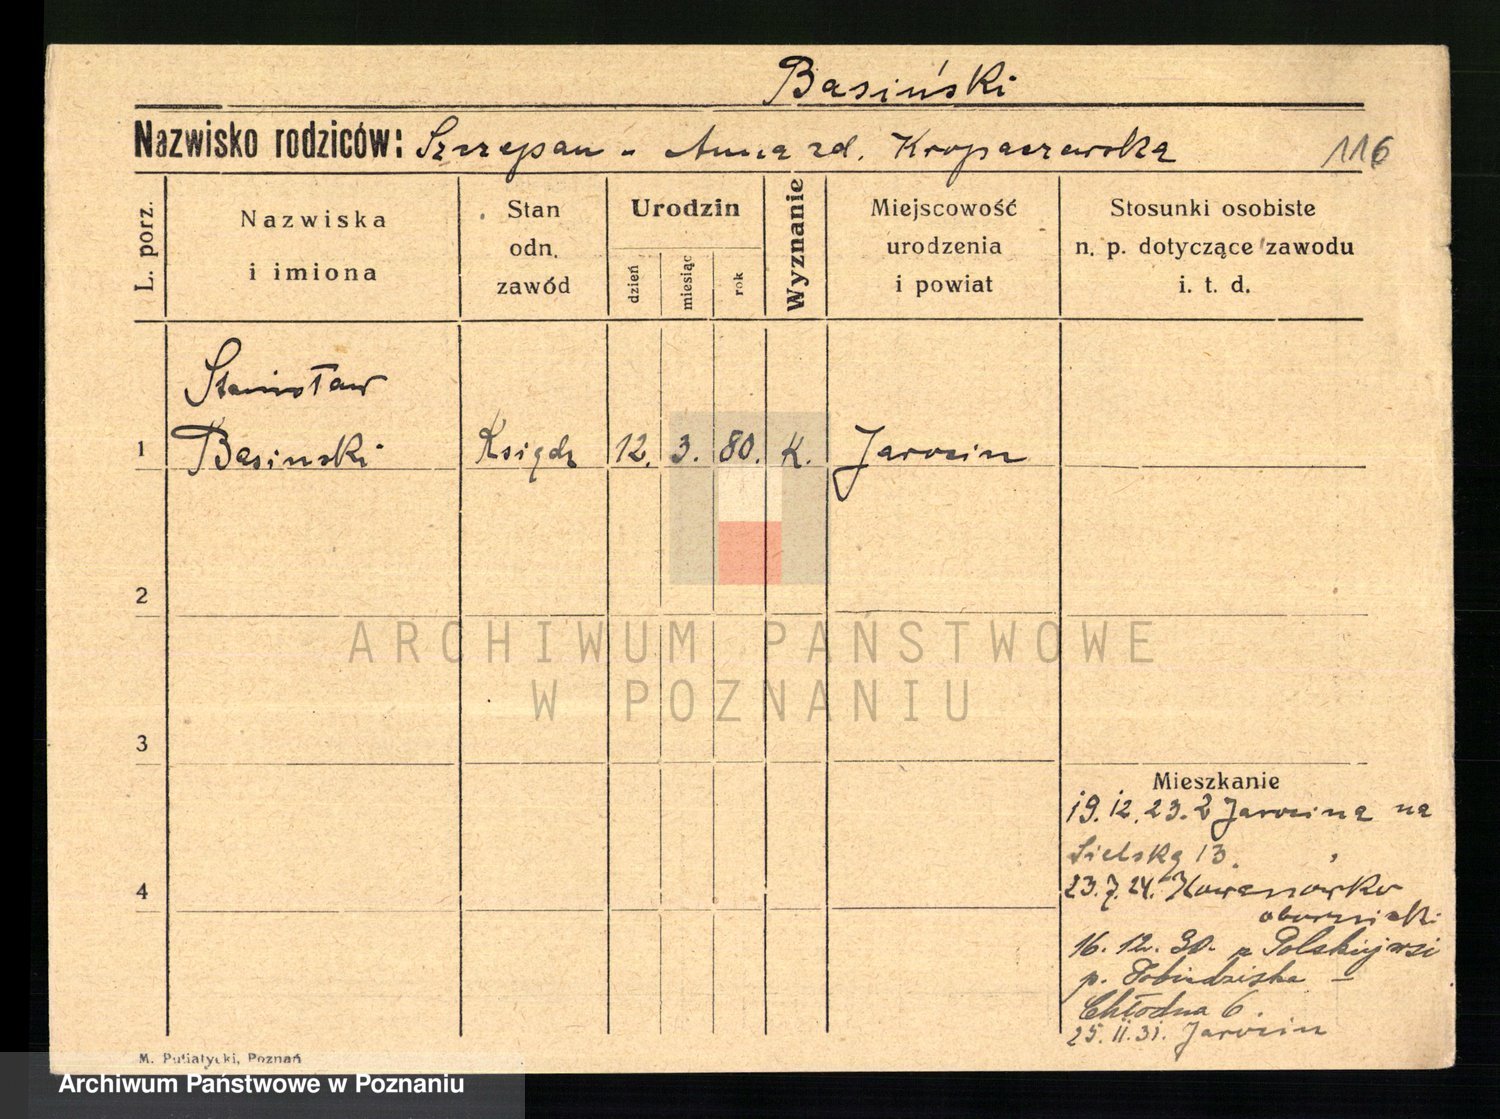 Basiński
Nazwisko rodziców: Szczepan - Anna zd. Kropaczewska 116
L. porz.
Nazwiska
i imiona
Stan
odn.
zawód
Urodzin
dzień
miesiąc
rok
Wyznanie
Miejscowość
urodzenia
i powiat
Stosunki osobiste
n. p. dotyczące zawodu
i. t. d.
Stanisław
1 Basinski Ksiądz 12. 3. 80. K. Jarocin
2
ARCHIWUM PAŃSTWOWE
W POZNANIU
3
Mieszkanie
19.12.23. z Jarocina na
Sielską 13.
4
23.7.24. Kowanówko
obornicki
16. 12. 30. z Polskiejwsi
p. Pobiedziska -
Chłodna 6.
25. II. 31. Jarocin
M. Putiatycki, Poznań
Archiwum Państwowe w Poznaniu